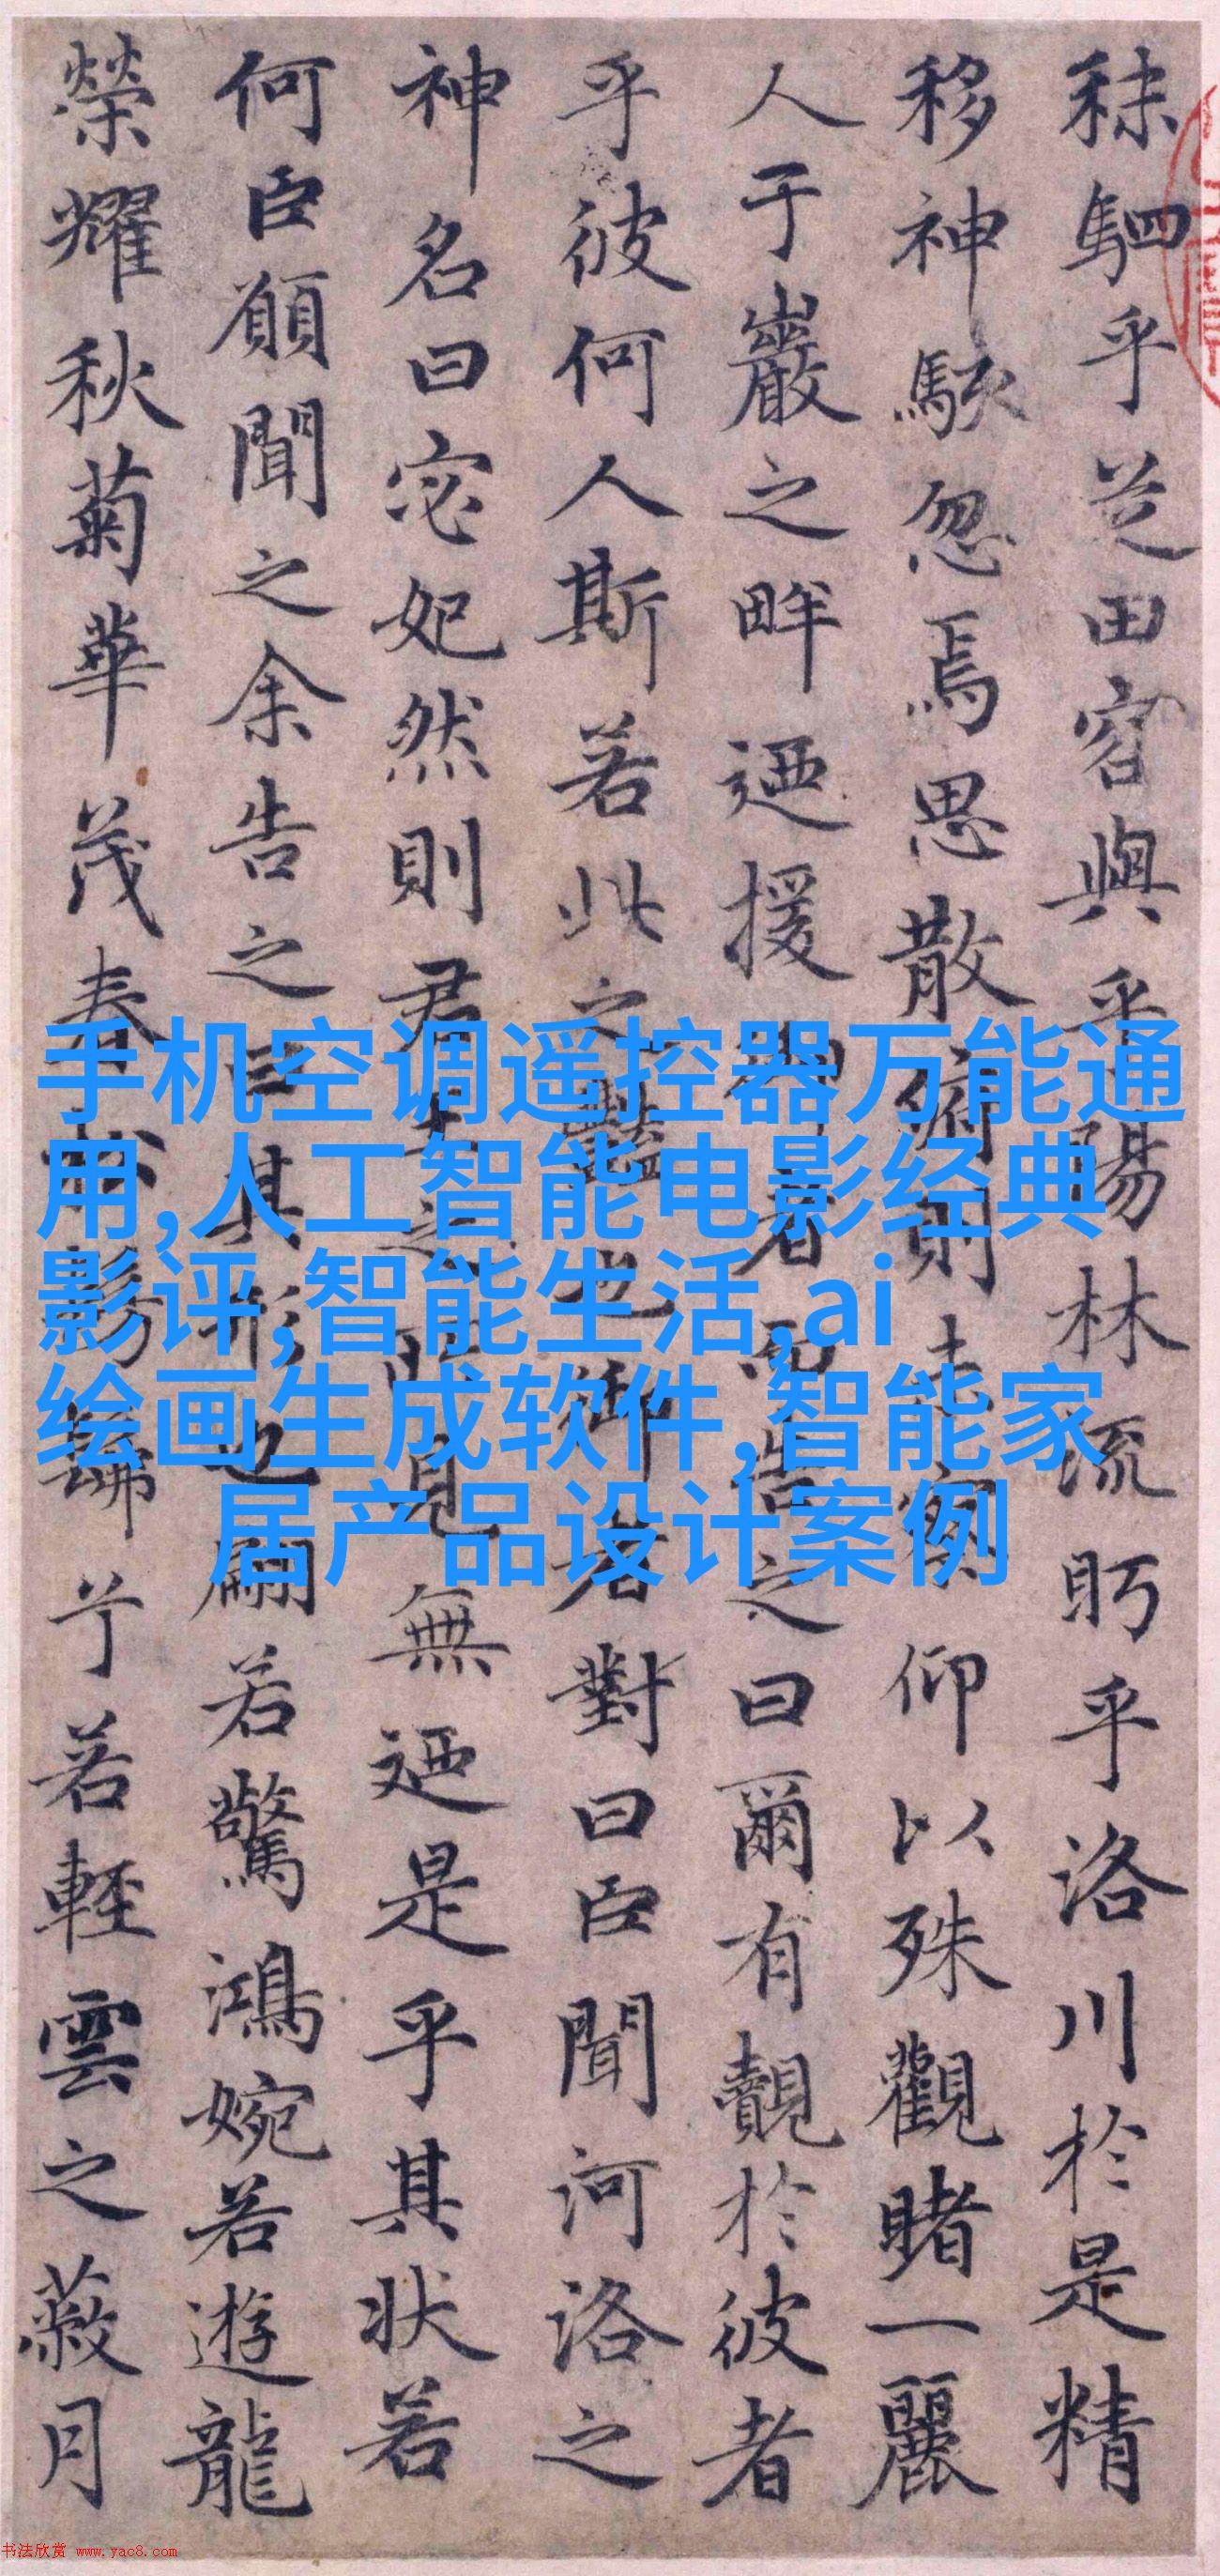 秣駟乎芝田容與乎陽林流眄乎洛川於是精
移神駭忽焉思散俯則未察仰以殊觀睹一麗
人于巖之畔迺援御者而告之曰爾有覿於彼者
乎彼何人斯若此之豔也御者對曰臣聞河洛之
神名曰宓妃然則君王之所見無迺是乎其狀若
何臣願聞之余告之曰其形也翩若驚鴻婉若遊龍
榮耀秋菊華茂春松髣髴兮若輕雲之蔽月
手机空调遥控器万能通
用,人工智能电影经典
影评,智能生活,ai
绘画生成软件,智能家
居产品设计案例
书法欣赏 www.yac8.com